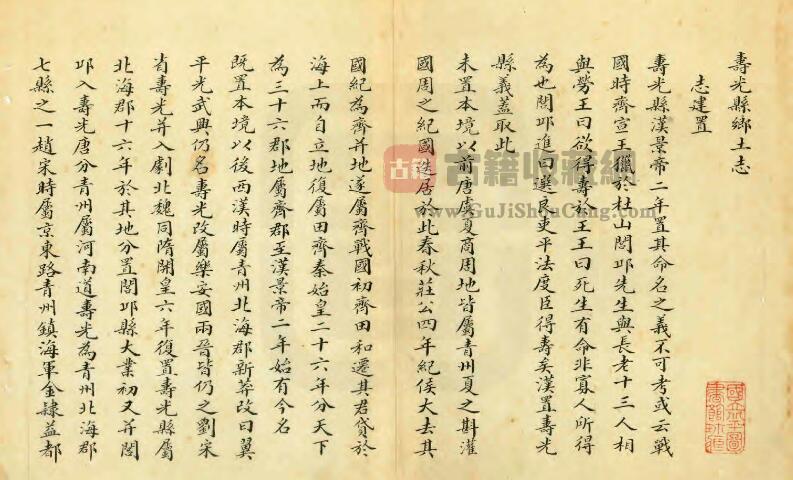 壽光縣鄉土志
志建置
壽光縣漢景帝二年置其命名之義不可考或云戰
國時齊宣王獵於杜山閭邱先生與長老十三人相
與勞王曰欲得壽於王王曰死生有命非寡人所得
為也閭邱進曰選良吏平法度臣得壽矣漢置壽光
縣義蓋取此
未置本境以前唐虞夏商周地皆屬青州夏之斟灌
國周之紀國迭居於此春秋莊公四年紀侯大去其
國紀為齊并地遂屬齊戰國初齊田和遷其君貸於
海上而自立地復屬田齊秦始皇二十六年分天下
為三十六郡地屬齊郡至漢景帝二年始有今名
既置本境以後西漢時屬青州北海郡新莽改曰翼
平光武興仍名壽光改屬樂安國兩晉皆仍之劉宋
省壽光并入劇北魏同隋開皇六年復置壽光縣屬
北海郡十六年於其地分置閭邱縣大業初又并閭
邱入壽光唐分青州屬河南道壽光為青州北海郡
七縣之一趙宋時屬京東路青州鎮海軍金隸益都
古籍
古籍收藏網
www.GuJiShouCang.com